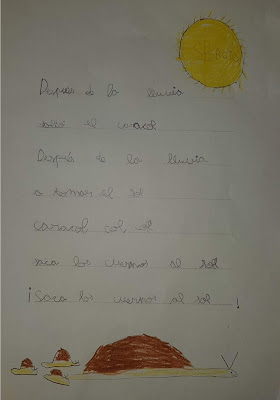 Despues de la lluvia
salió el caracol
Después de la lluvia
a tomar el sol
caracol col col
saca los cuernos al sol
¡Saca los cuernos al sol!